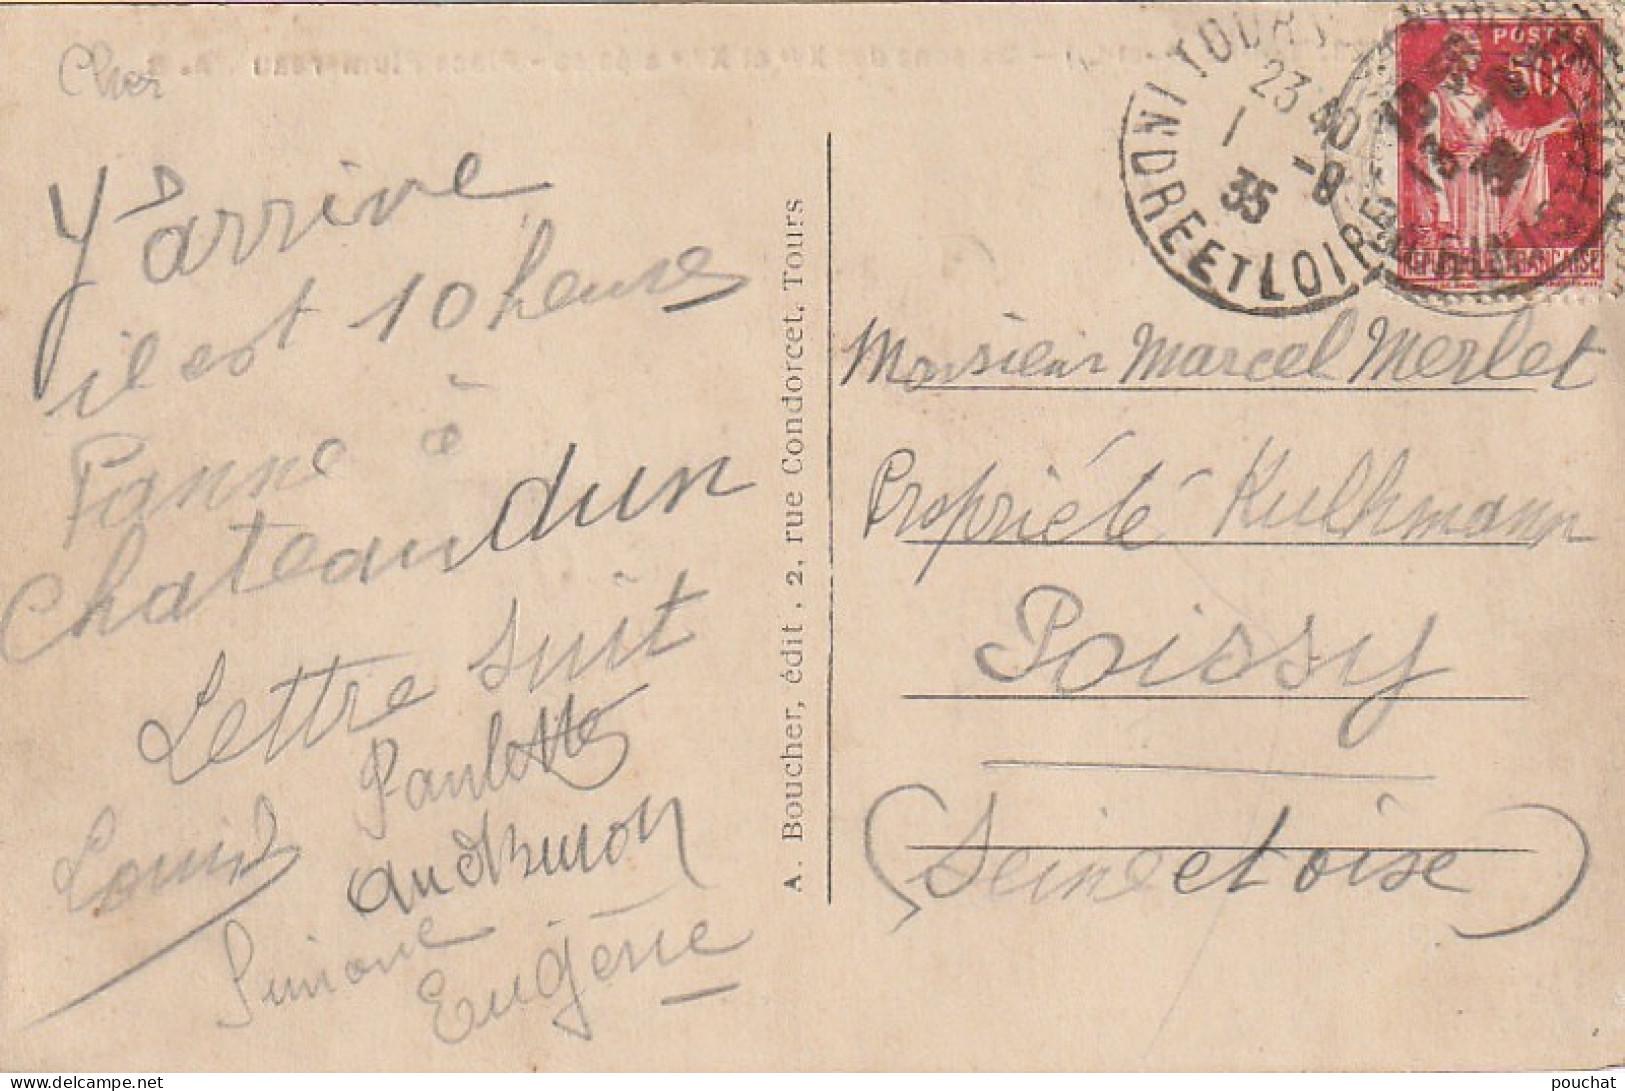 Cher
J'arrive
il est 10 heures
Panne à
Chateaudun
Lettre suit
Paulette
Louis
Simone
Eugénie
A. Boucher, édit. 2, rue Condorcet, Tours
TOURS
INDRE ET LOIRE
23 40
1 -8
35
POSTES
50c
REPUBLIQUE FRANÇAISE
Monsieur Marcel Merlet
Propriété Kulhmann
Poissy
(Seine et oise)
pouchat